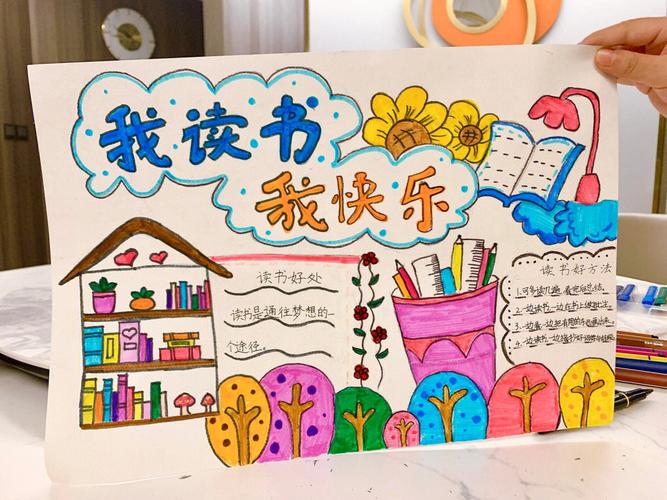 我读书
我快乐
读书好处
读书是通往梦想的一
个途径。
读书好方法
1.可多读几遍,看完后总结。
2.一边读书一边在书上做批注。
3.一边看一边把有用的句子画出来。
4.一边读书一边摘抄好词